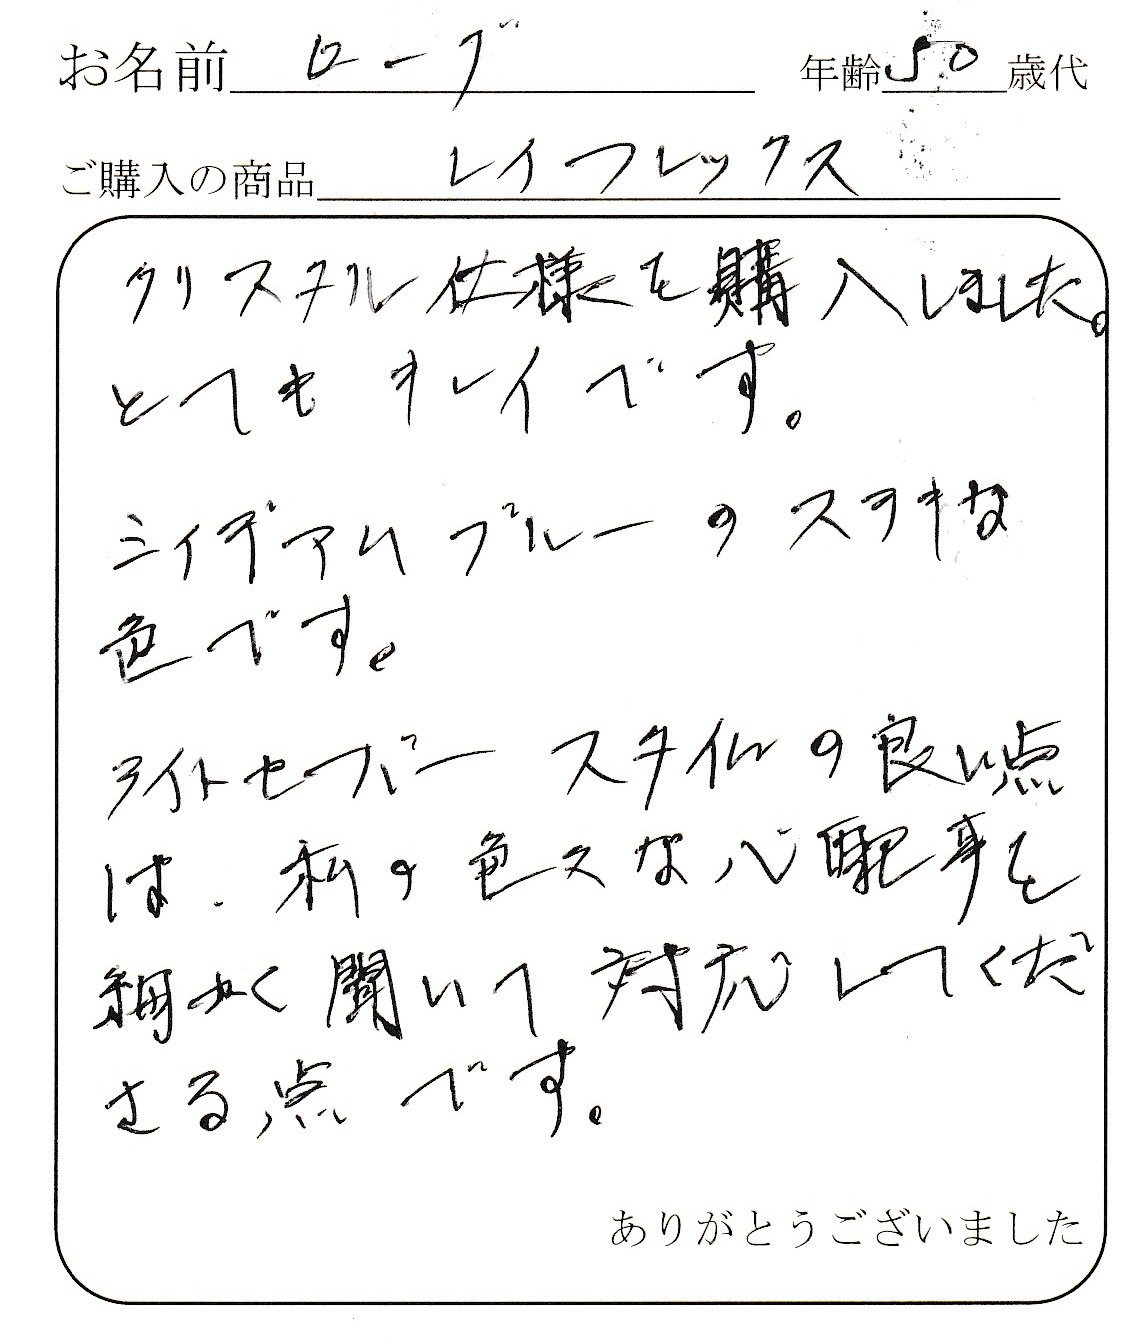 お名前 ローブ 年齢 50 歳代
ご購入の商品 レイフレックス
クリスタル仕様を購入しました。
とてもキレイです。
ミイデアムブルーのステキな
色です。
ライトセーバースタイルの良い点
は、私の色々な心配事を
細かく聞いて対応してくだ
さる点です。
ありがとうございました